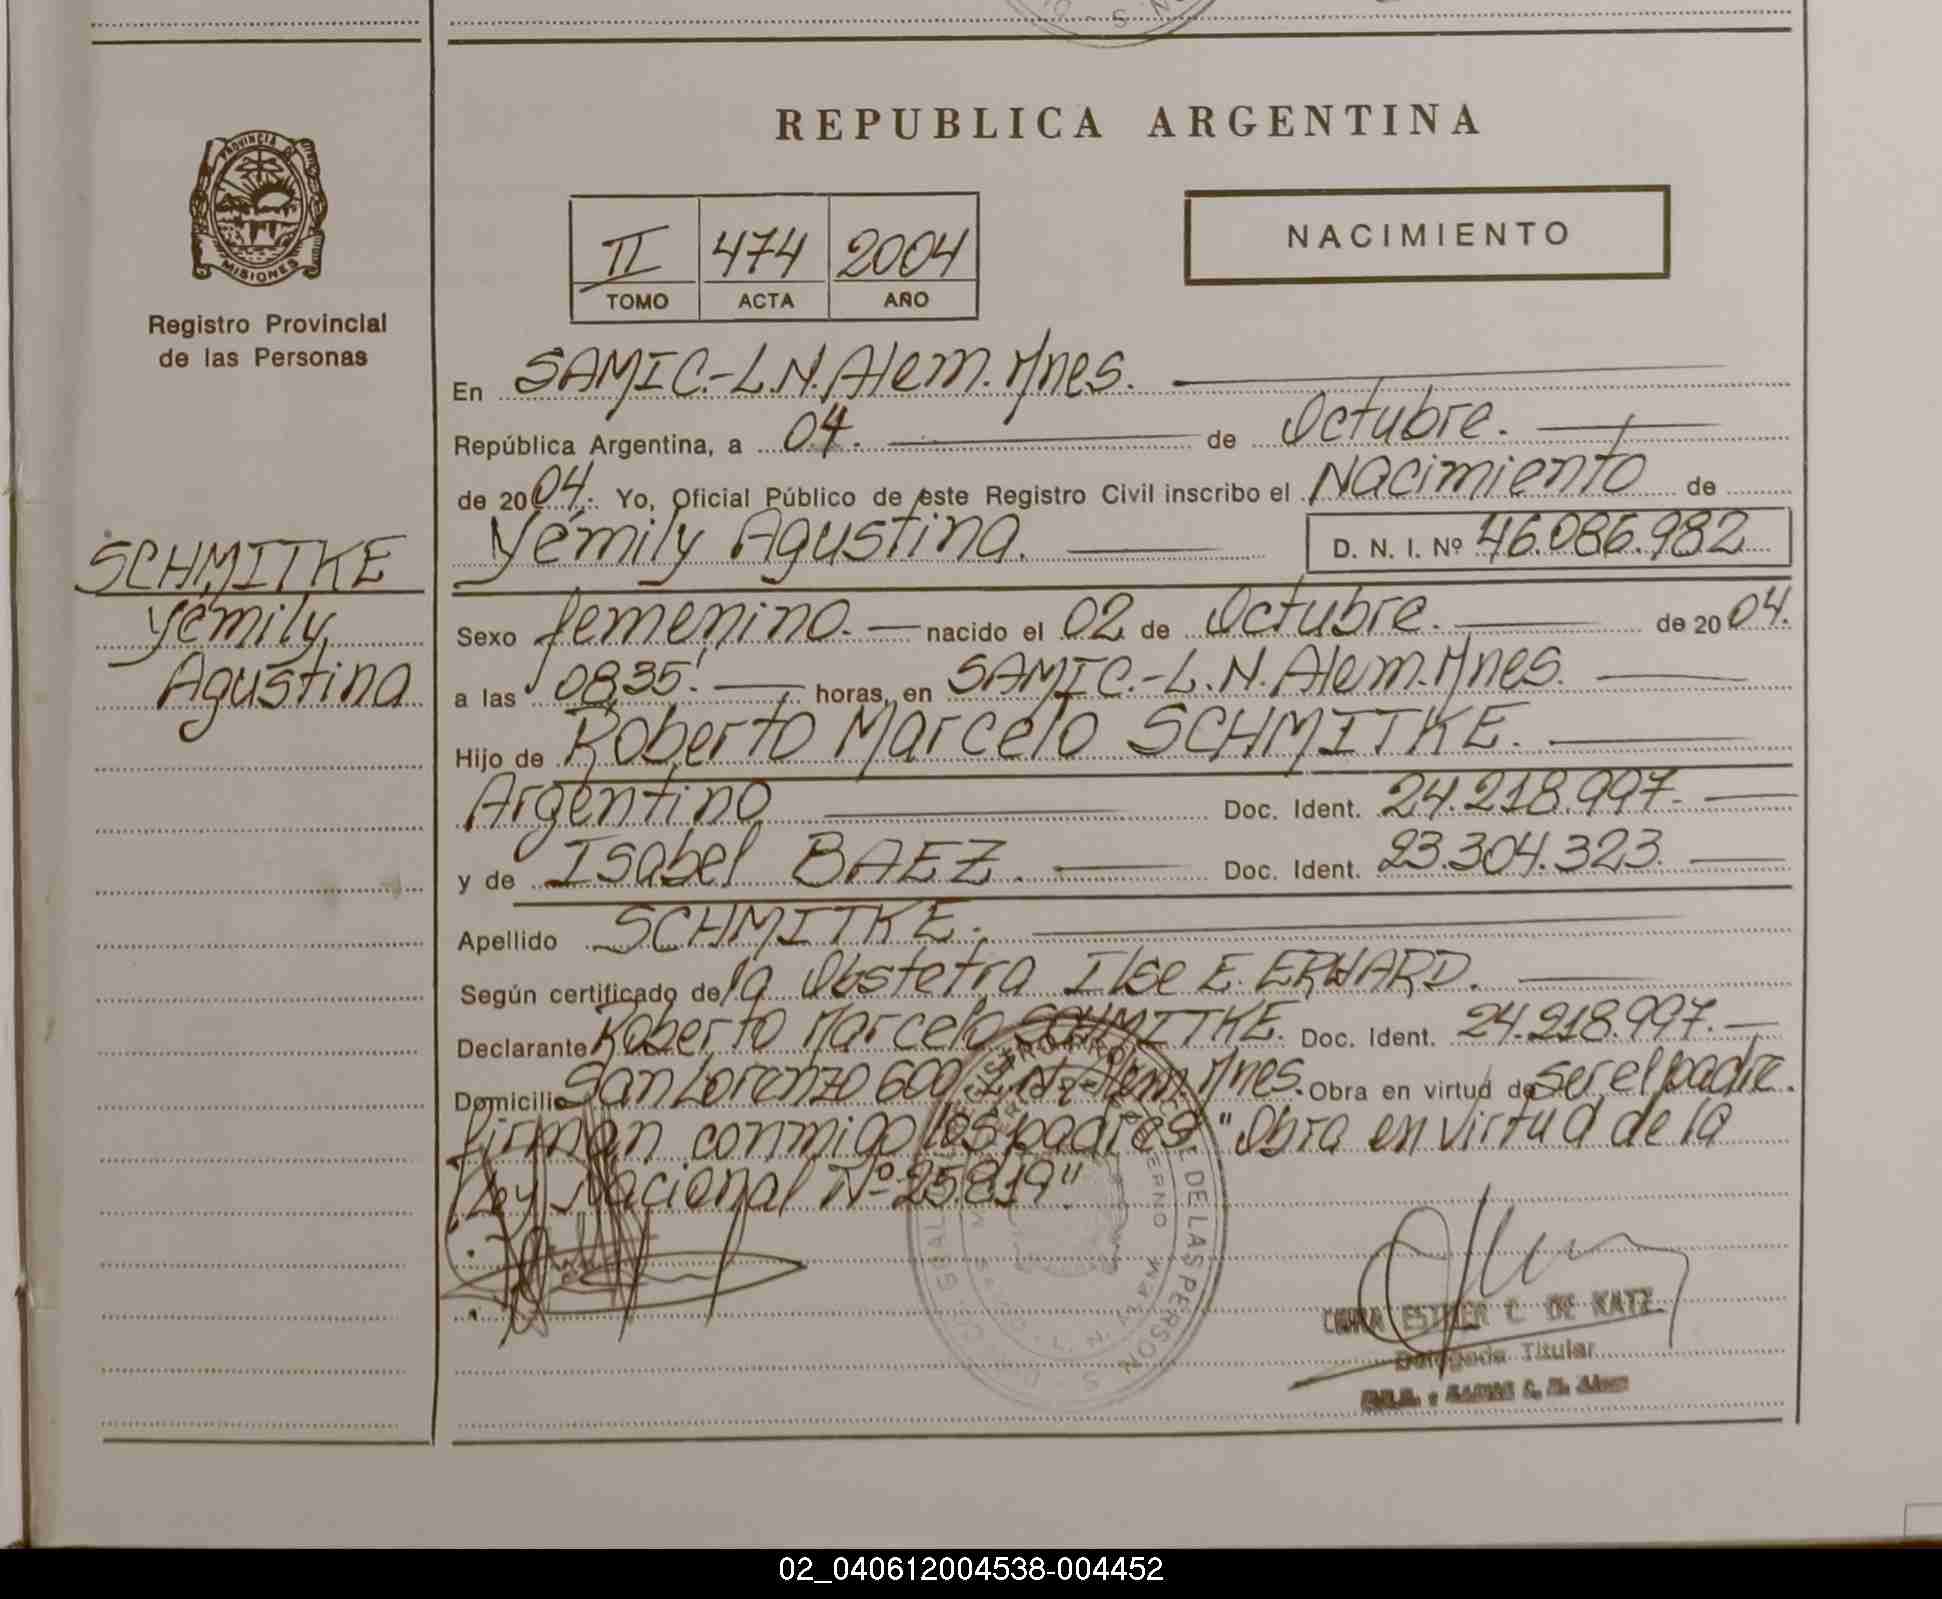 REPUBLICA ARGENTINA
PROVINCIA DE
MISIONES
Registro Provincial
de las Personas
II 474 2004
TOMO ACTA AÑO
NACIMIENTO
En SAMIC.-L.N.Alem.Mnes.
República Argentina, a 04. de Octubre.
de 2004. Yo, Oficial Público de este Registro Civil inscribo el Nacimiento de
Yémily Agustina. D. N. I. Nº 46.086.982
SCHMITKE
Yémily
Agustina
Sexo femenino. nacido el 02 de Octubre. de 2004.
a las 08,35'. horas, en SAMIC.-L.N.Alem.Mnes.
Hijo de Roberto Marcelo SCHMITKE.
Argentino Doc. Ident. 24.218.997.
y de Isabel BAEZ. Doc. Ident. 23.304.323.
Apellido SCHMITKE.
Según certificado de la Obstetra Ilse E. ERHARD.
Declarante Roberto Marcelo SCHMITKE. Doc. Ident. 24.218.997.
Domicilio San Lorenzo 600 L.N.-Alem.Mnes. Obra en virtud de ser el padre.
firman conmigo los padres "Obra en virtud de la
Ley Nacional Nº 25.819".
DE LAS PERSON
ESTHER C. DE KATZ
Delegada Titular
02_040612004538-004452